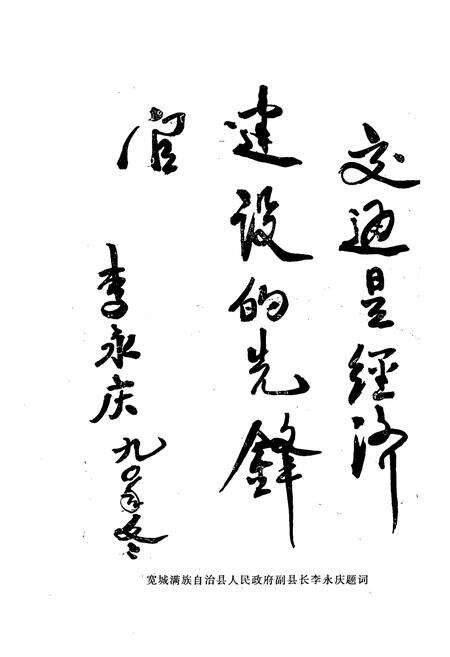 交通是经济
建设的先鋒
官
李永庆
九〇年冬
宽城满族自治县人民政府副县长李永庆题词